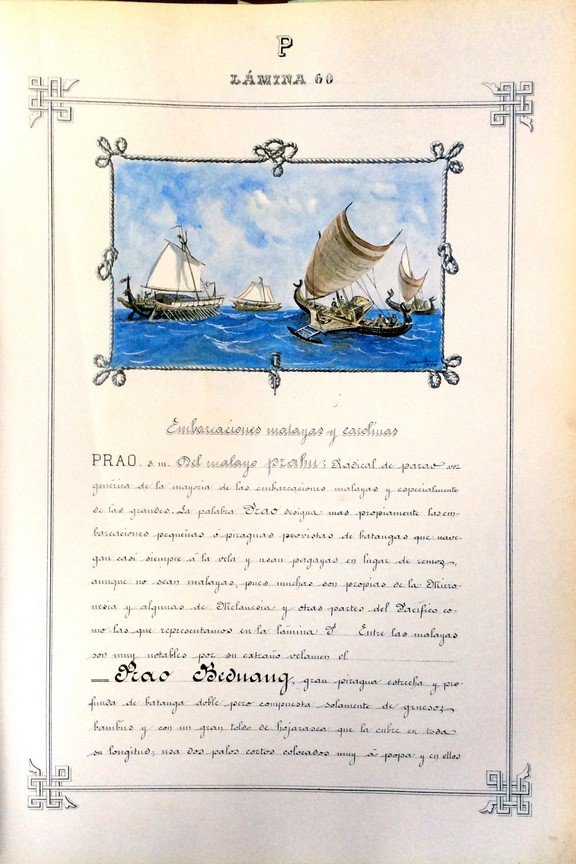 P
LÁMINA 60
Embarcaciones malayas y carolinas
PRAO. s. m. Del malayo prahu: Radical de parao voz
genérica de la mayoria de las embarcaciones malayas y especialmente
de las grandes. La palabra Prao designa mas propiamente las em-
barcaciones pequeñas ó piraguas provistas de batangas que nave-
gan casi siempre á la vela y usan pagayas en lugar de remos,
aunque no sean malayas, pues muchas son propias de la Micro-
nesia y algunas de Melanesia y otras partes del Pacífico co-
mo las que representamos en la lámina P Entre las malayas
son muy notables por su extraño velamen el
— Prao Beduang, gran piragua estrecha y pro-
funda de batanga doble pero compuesta solamente de gruesos
bambus y con un gran toldo de hojarasca que la cubre en toda
su longitud; usa dos palos cortos colocados muy á popa y en ellos